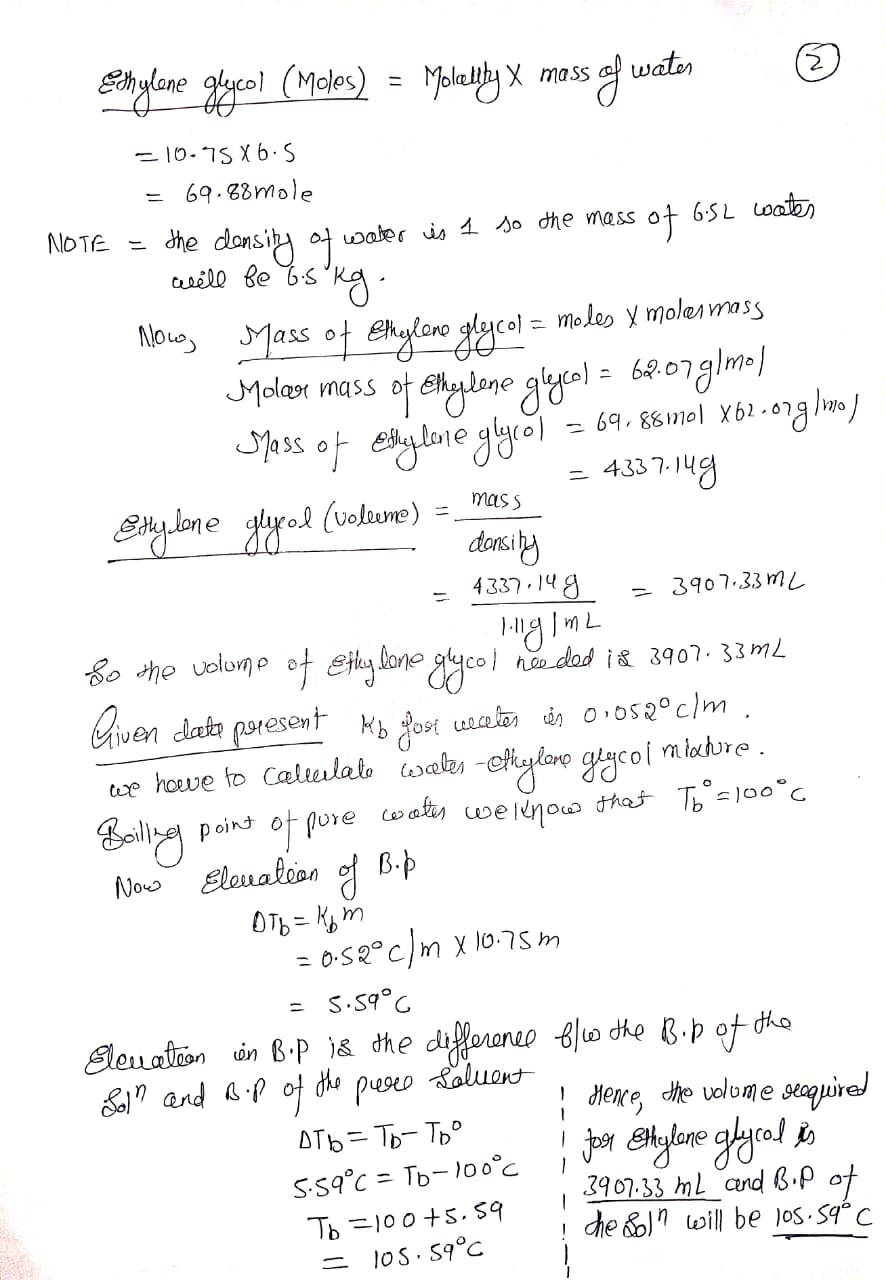 2
Ethylene glycol (Moles) = Molality X mass of water
= 10.75 X 6.5
= 69.88mole
NOTE = the density of water is 1 so the mass of 6.5L water
will be 6.5 kg.
Now, Mass of Ethylene glycol = moles X molar mass
Molar mass of Ethylene glycol = 62.07 g/mol
Mass of Ethylene glycol = 69.88mol X 62.07g/mol
= 4337.14g
Ethylene glycol (volume) = mass / density
= 4337.14g / 1.11g/mL = 3907.33mL
So the volume of Ethylene glycol needed is 3907.33mL
Given data present Kb for water is 0.052°c/m.
we have to calculate water-ethylene glycol mixture.
Boiling point of pure water we know that Tb° = 100°C
Now Elevation of B.p
ΔTb = Kb m
= 0.52°c/m X 10.75m
= 5.59°C
Elevation in B.P is the difference b/w the B.p of the
Solⁿ and B.P of the pure Solvent
ΔTb = Tb - Tb°
5.59°C = Tb - 100°C
Tb = 100 + 5.59
= 105.59°C
Hence, the volume required
for Ethylene glycol is
3907.33 mL and B.P of
the Solⁿ will be 105.59°C